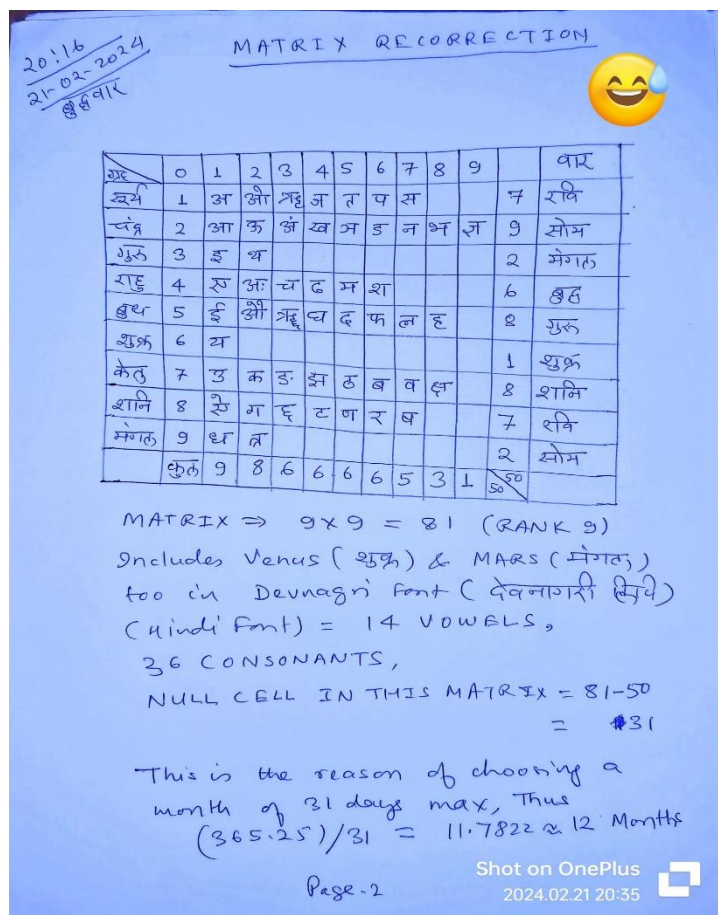 20:16
21-02-2024
बुद्धवार
MATRIX RECORRECTION
ग्रह 0 1 2 3 4 5 6 7 8 9 वार
सूर्य 1 अ ओ ऋ ज त प स 7 रवि
चंद्र 2 आ ऊ अं ख ञ ड न भ ज्ञ 9 सोम
गुरू 3 इ थ 2 मंगल
राहु 4 ए अः च ढ म श 6 बुद्ध
बुध 5 ई औ ॠ घ द फ ल ह 8 गुरू
शुक्र 6 य 1 शुक्र
केतु 7 उ क ङ झ ठ ब व क्ष 8 शनि
शनि 8 ऐ ग छ ट ण र ष 7 रवि
मंगल 9 ध त्र 2 सोम
कुल 9 8 6 6 6 6 5 3 1 50 50
MATRIX ⇒ 9×9 = 81 (RANK 9)
Includes Venus (शुक्र) & MARS (मंगल)
too in Devnagri Font (देवनागरी लिपि)
(Hindi Font) = 14 VOWELS,
36 CONSONANTS,
NULL CELL IN THIS MATRIX = 81-50
= 31
This is the reason of choosing a
month of 31 days max, Thus
(365.25)/31 = 11.7822 ≈ 12 Months
Page-2
Shot on OnePlus
2024.02.21 20:35